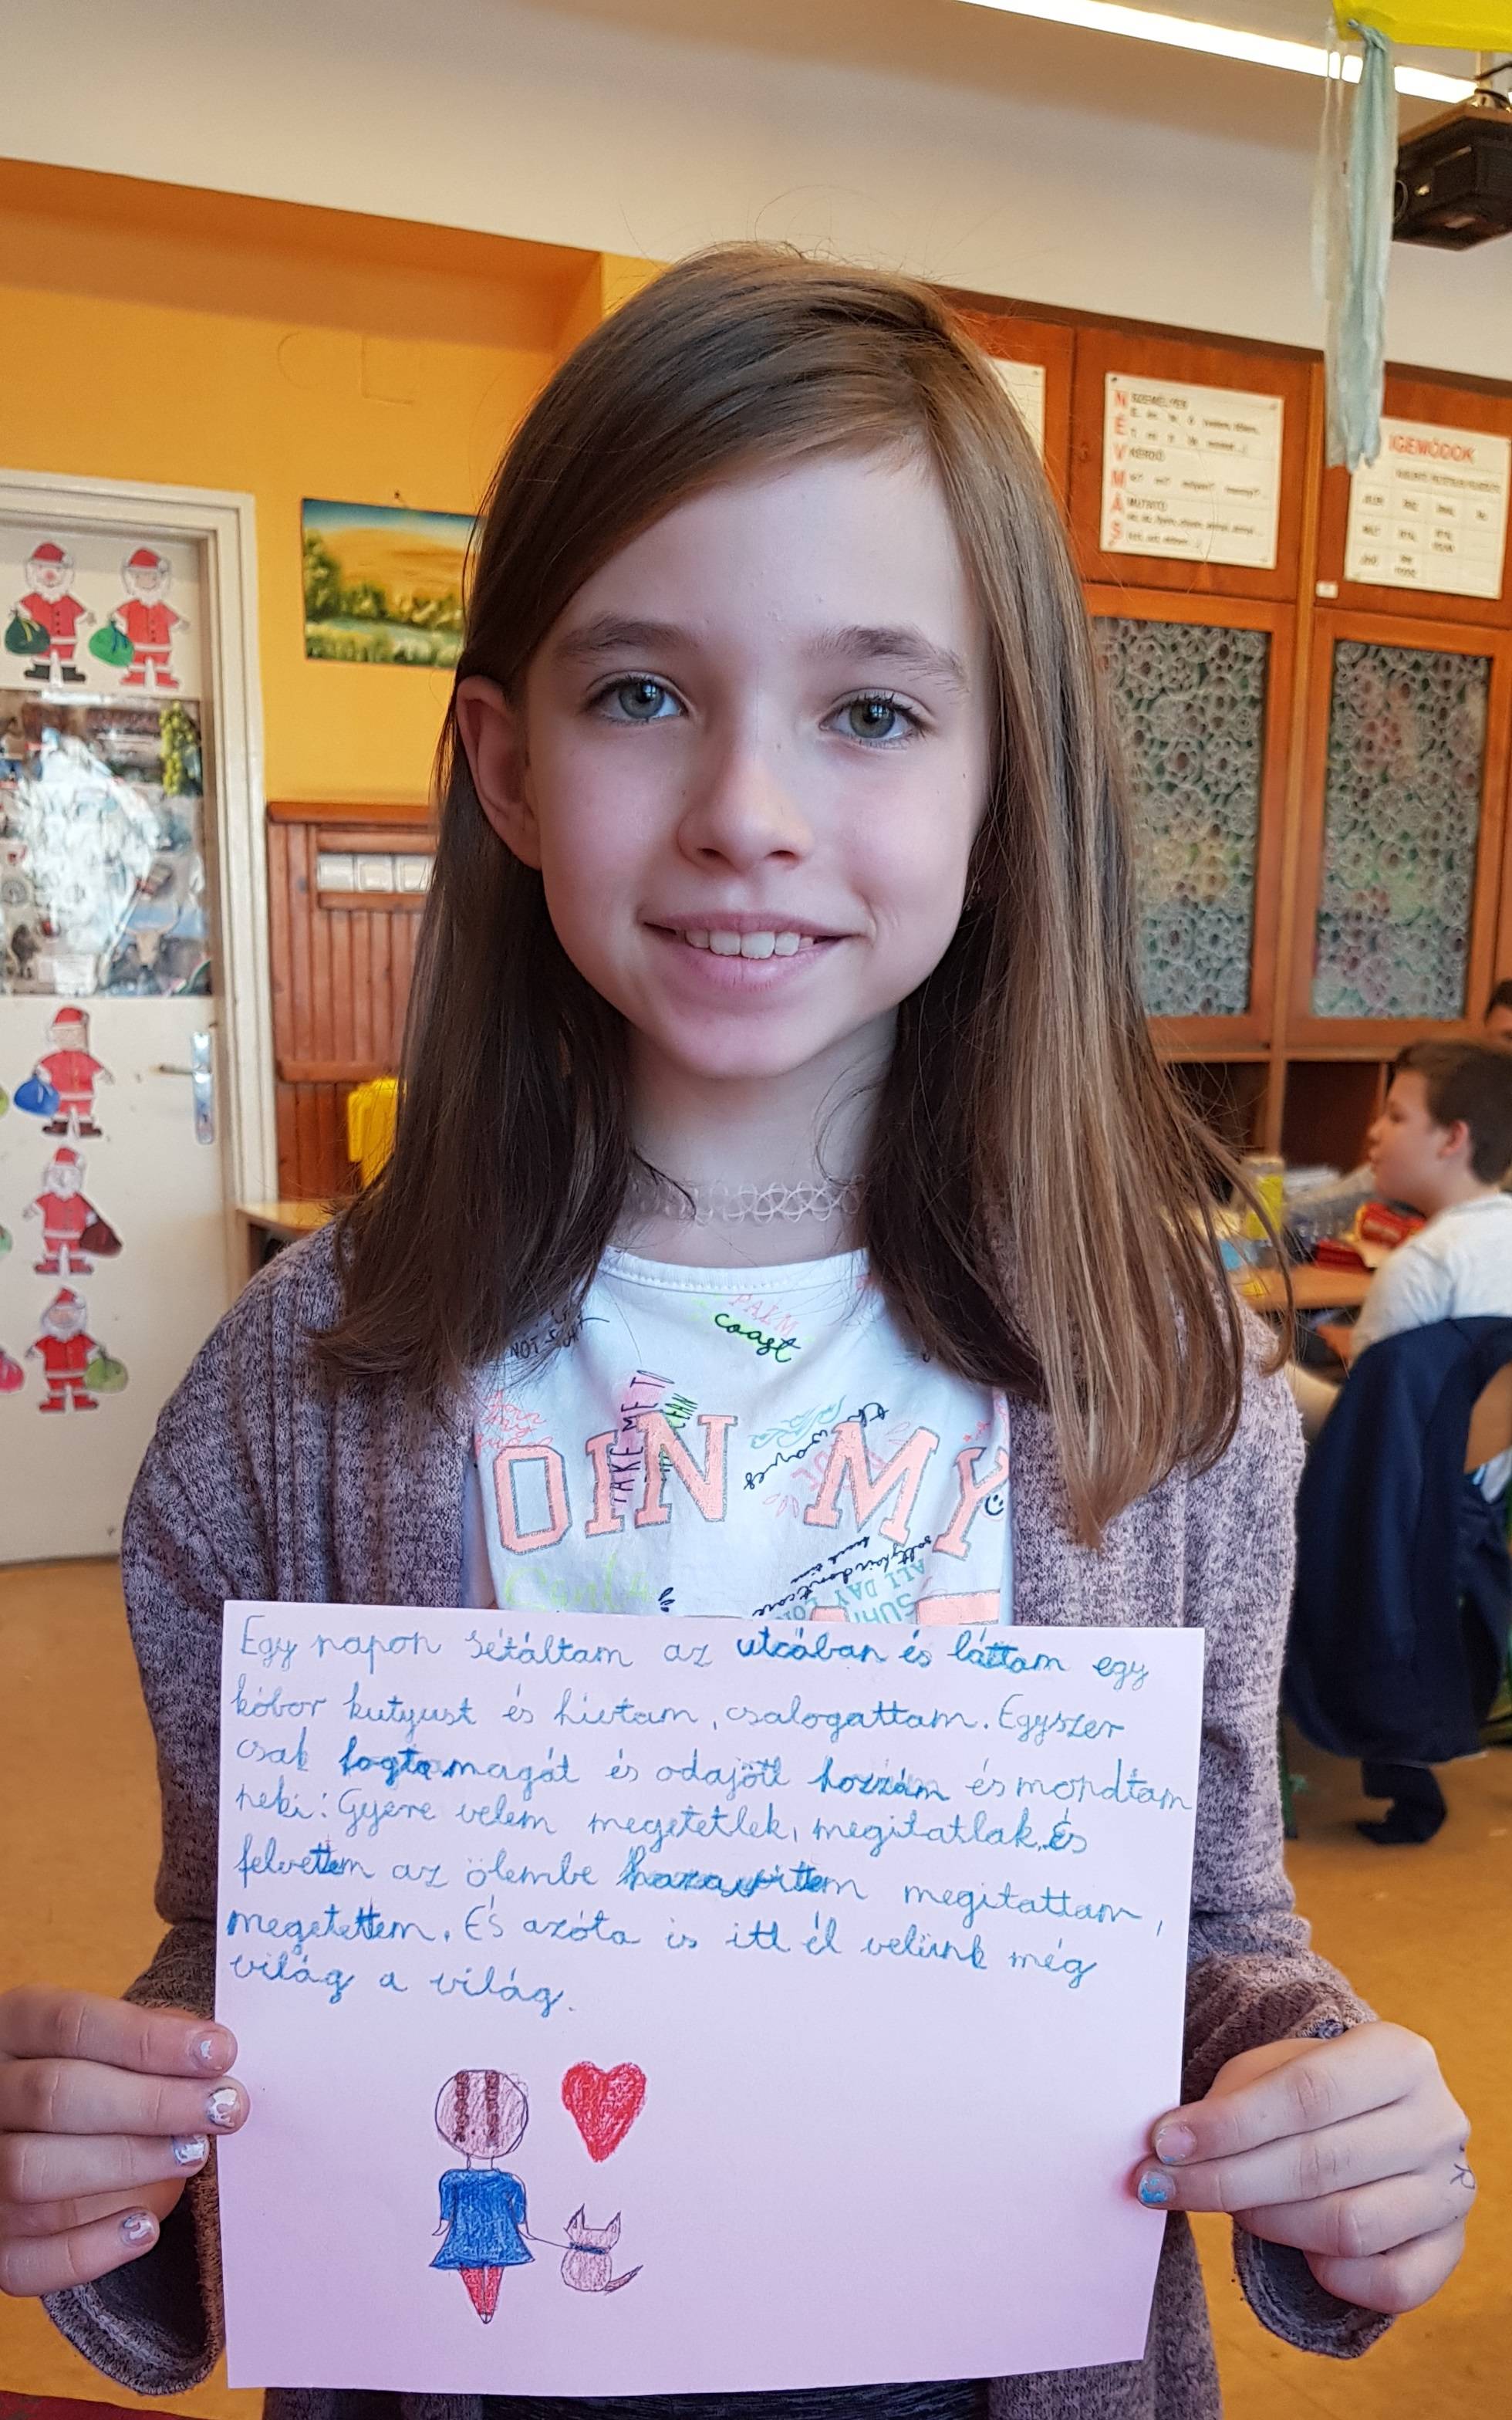 NÉVMÁS
SZEMÉLYES
KÉRDŐ
MUTATÓ
IGEMÓDOK
PALM
coast
TAKE ME TO
OIN MY
the waves
ALL DAY
SURF
Egy napon sétáltam az utcában és láttam egy
kóbor kutyust és hívtam, csalogattam. Egyszer
csak fogta magát és odajött hozzám és mondtam
neki: Gyere velem megetetlek, megitatlak, És
felvettem az ölembe hazavittem megitattam,
megetettem. És azóta is itt él velünk még
világ a világ.